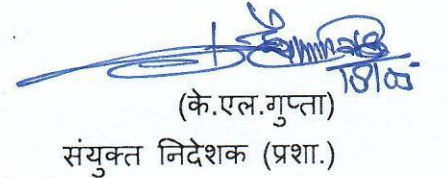 18/05
(के.एल.गुप्ता)
संयुक्त निदेशक (प्रशा.)